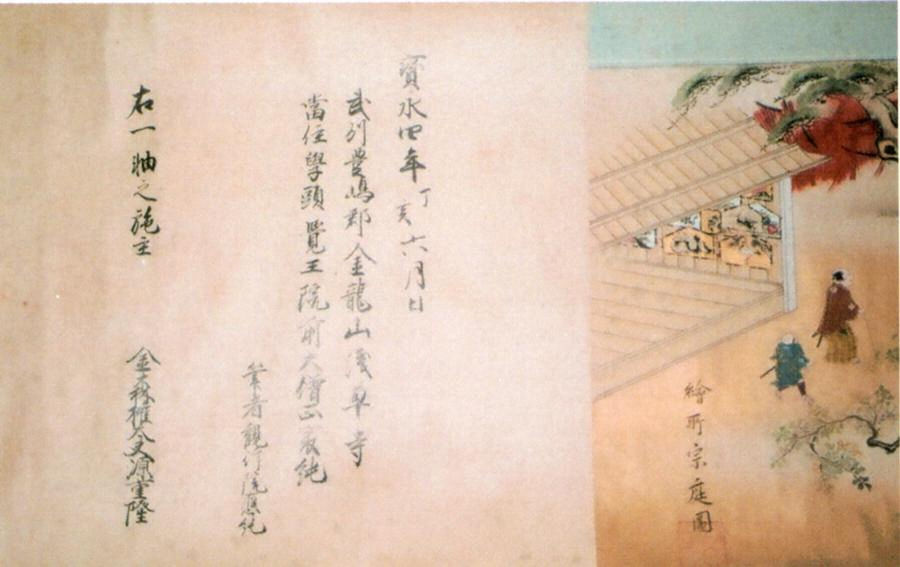 繪所宗庭圖
寳永四年丁亥六月日
武列豊嶋郡金龍山淺草寺
當住學頭覺王院前大僧正宸純
筆者觀行院慈純
右一軸之施主
金森權大夫源重隆